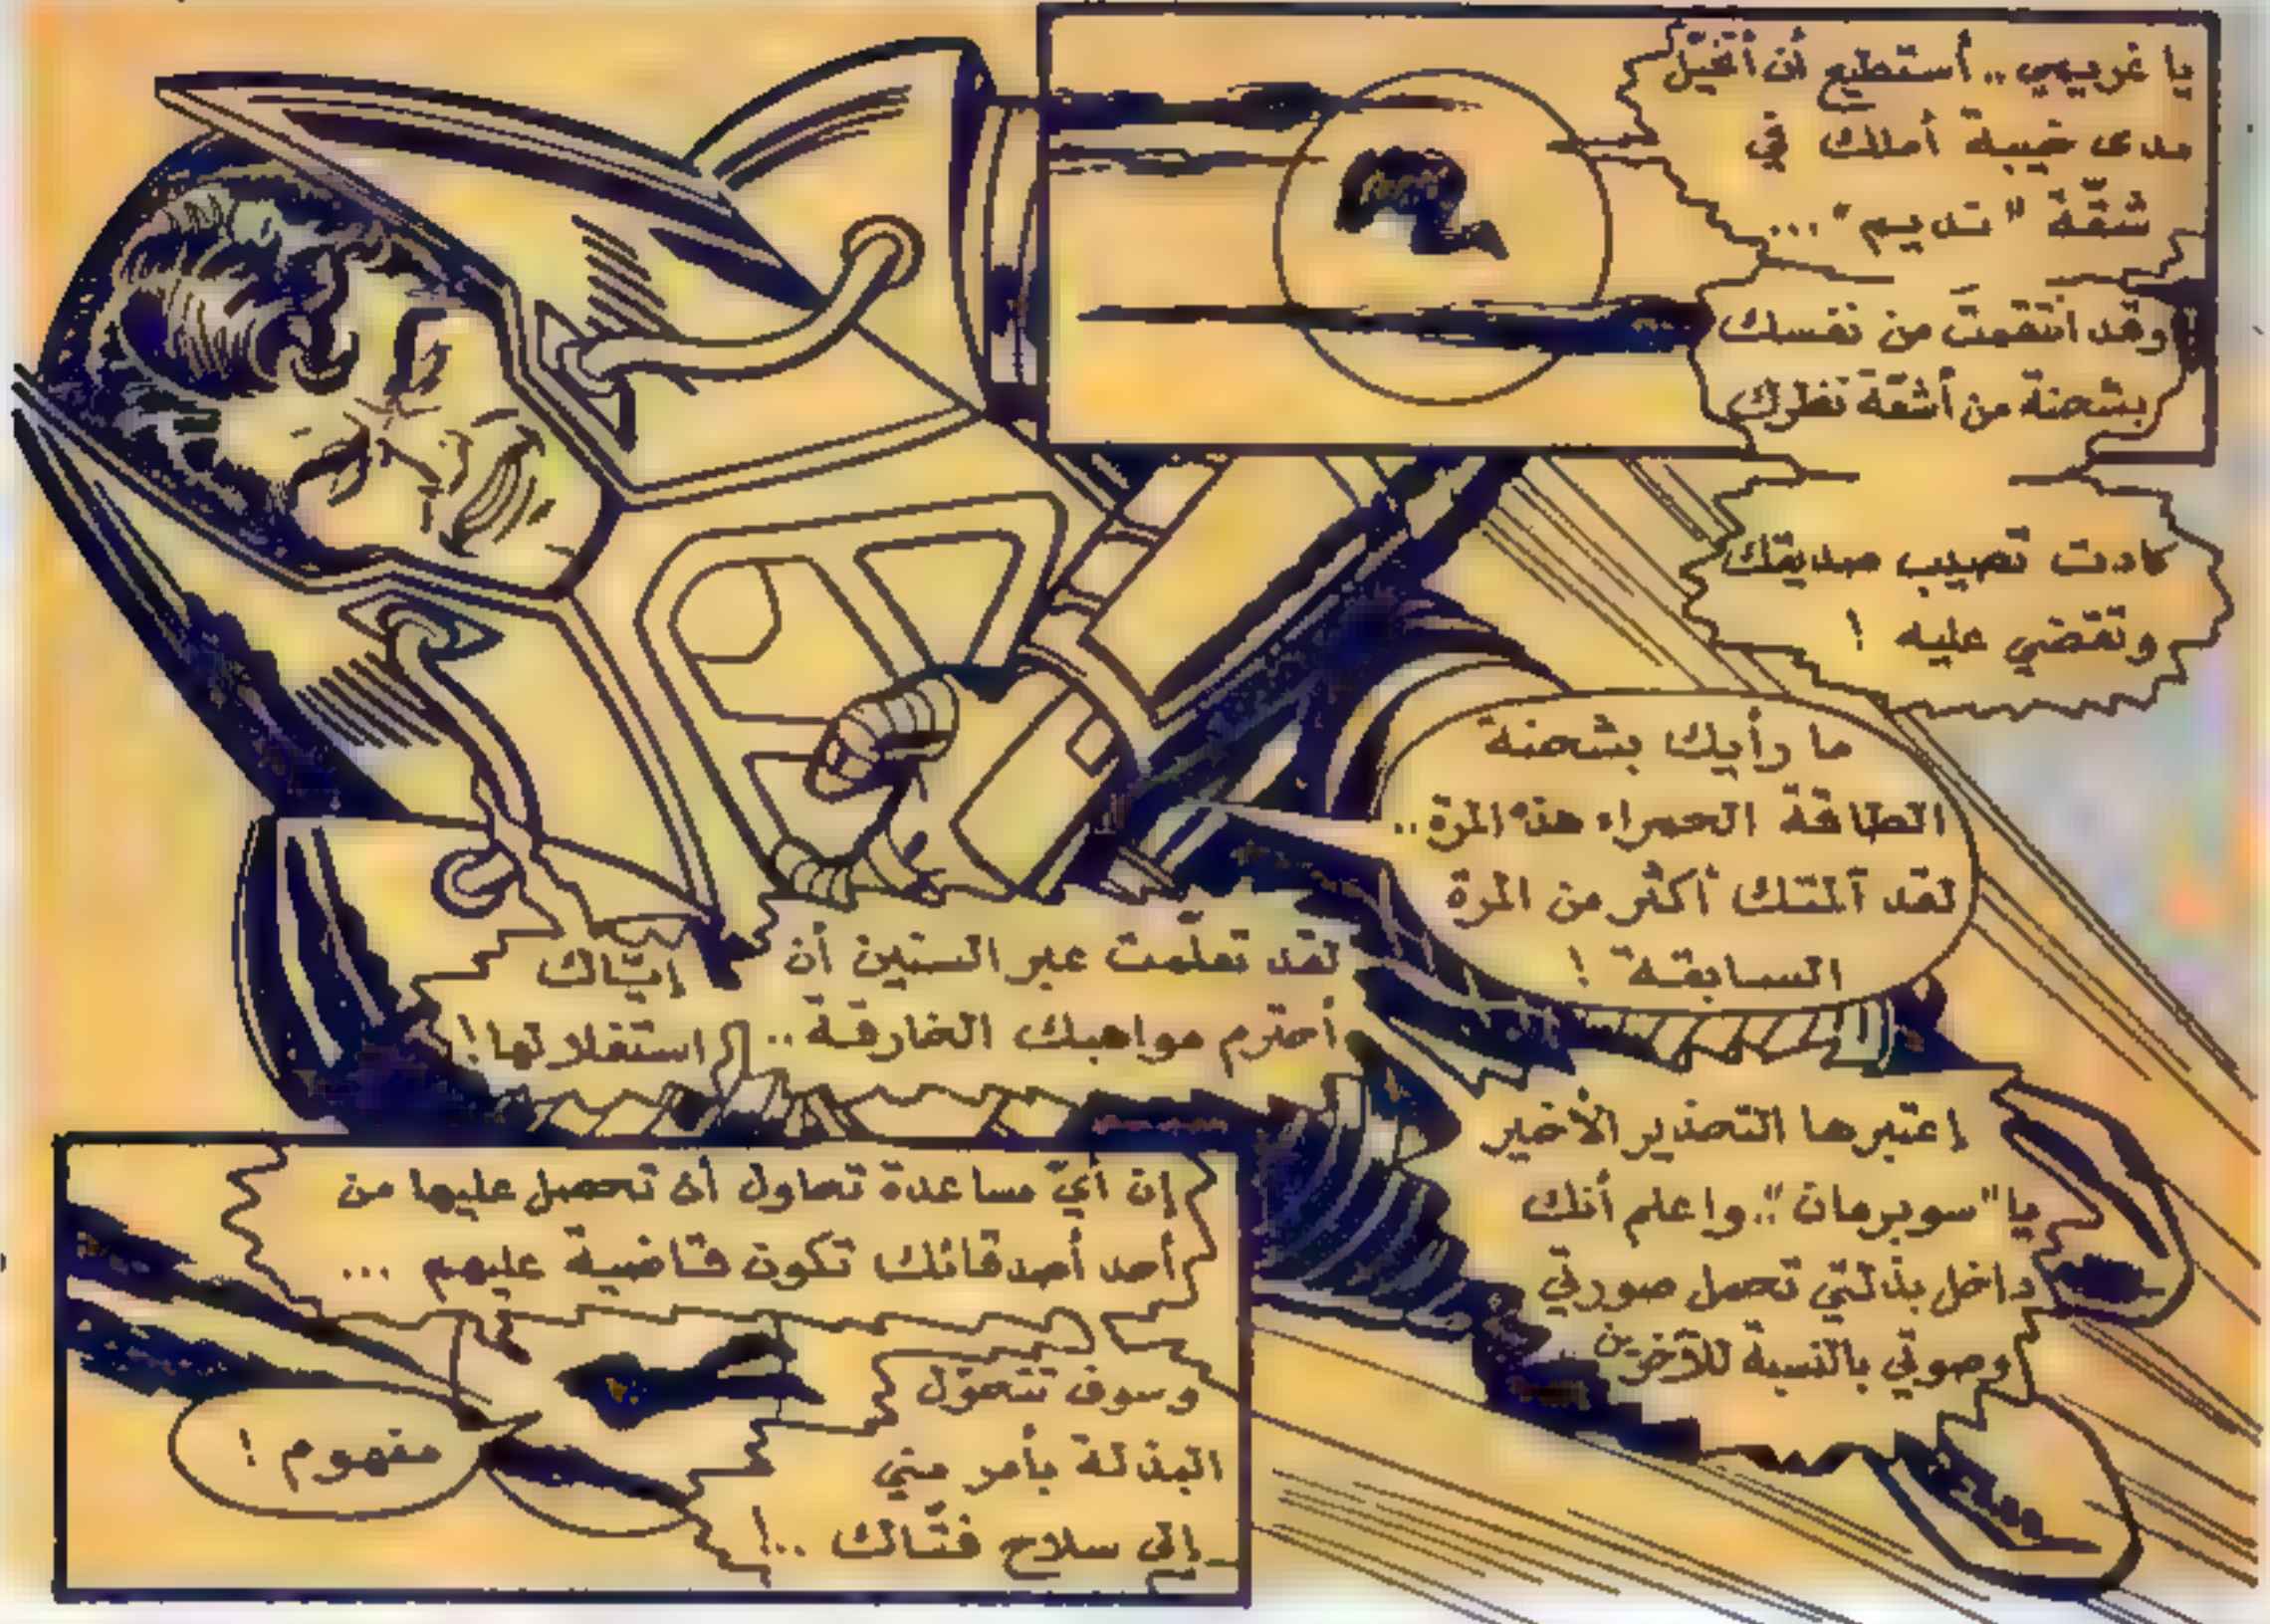 يا غريمي .. أستطيع أن أتخيّل
مدى خيبة أملك في
شقّة "نديم" ...
وقد انتقمتَ من نفسك
بشحنة من أشعّة نظرك
كادت تصيب صديقك
وتقضي عليه !
ما رأيك بشحنة
الطاقة الحمراء هذه المرة ..
لقد آلمتك أكثر من المرة
السابقة !
لقد تعلّمت عبر السنين أن
أحترم مواهبك الخارقة ..
إيّاك
استغلالها !
إعتبرها التحذير الأخير
يا "سوبرمان" !. واعلم أنك
داخل بذلتي تحمل صورتي
وصوتي بالنسبة للآخرين ..
إن أيّ مساعدة تحاول أن تحصل عليها من
أحد أصدقائك تكون قاضية عليهم ...
وسوف تتحوّل
البذلة بأمر منّي
إلى سلاح فتّاك ..!
مفهوم !